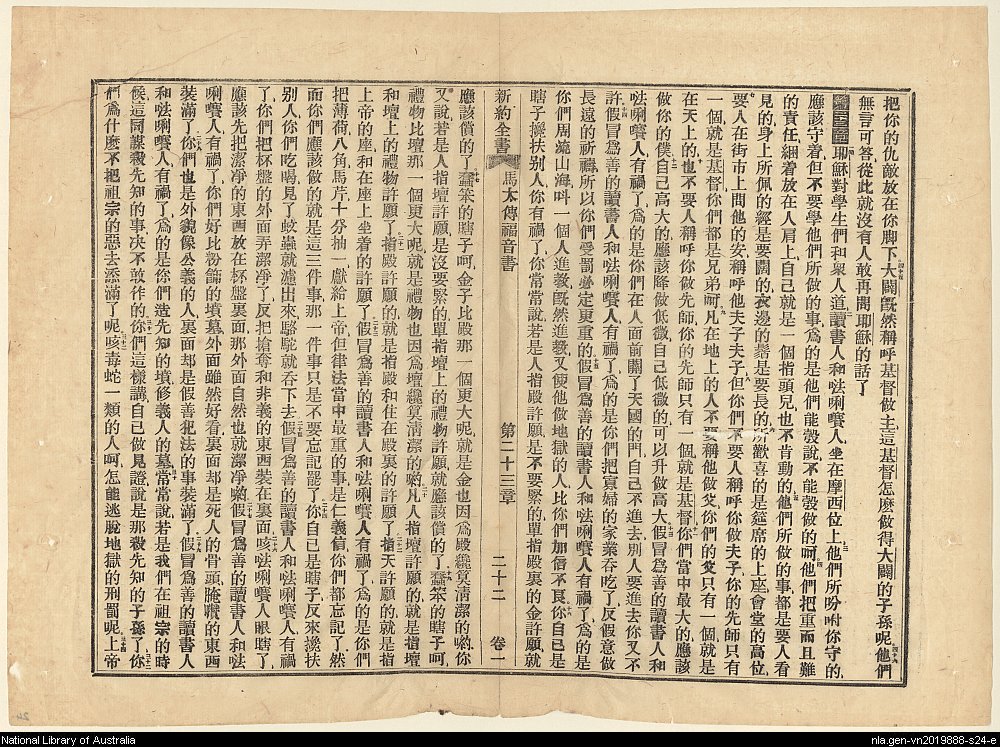 把你的仇敵放在你脚下大闢旣然稱呼基督做主這基督怎麽做得大闢的子孫呢他們
無言可答從此就沒有人敢再問耶穌的話了
第二十三章耶穌對學生們和衆人道讀書人和𠵽唎嚽人坐在摩西位上他們所吩咐你守的
應該守着但不要學他們所做的事爲的是他們能彀說不能彀做的呵他們把重而且難
的責任綑着放在人肩上自己就是一個指頭兒也不肯動的他們所做的事都是要人看
見的身上所佩的經是要闊的衣邊的䰅是要長的所歡喜的是筵席的上座會堂的高位
要人在街市上問他的安稱呼他夫子夫子但你們不要人稱呼你做夫子你的先師只有
一個就是基督你們都是兄弟呵凡在地上的人不要稱他做父你們的父只有一個就是
在天上的也不要人稱呼你做先師你的先師只有一個就是基督你們當中最大的應該
做你的僕自己高大的應該降做低微自己低微的可以升做高大假冒爲善的讀書人和
唎嚽人有禍了爲的是你們在人面前關了天國的門自己不進去別人要進去你又不
許假冒爲善的讀書人和唎嚽人有禍了爲的是你們把寡婦的家業吞吃了反假意做
長遠的祈禱所以你們受罰必定更重的假冒爲善的讀書人和唎嚽人有禍了爲的是
你們周流山海呌一個人進敎旣然進敎又使他做地獄的人比你們加倍不良你自己是
瞎子攙扶別人你有禍了你常常說若是人指殿許願是不要緊的單指殿裏的金許願就
新約全書 馬太傳福音書 第二十三章 二十二 卷一
應該償的了蠢笨的瞎子呵金子比殿那一個更大呢就是金也因爲殿纔算清潔的喲你
又說若是人指壇許願是沒要緊的單指壇上的禮物許願就應該償的了蠢笨的瞎子呵
禮物比壇那一個更大呢就是禮物也因爲壇纔算清潔的喲凡人指壇許願的就是指壇
和壇上的禮物許願了指殿許願的就是指殿和住在殿裏的許願了指天許願的就是指
上帝的座和在座上坐着的許願了假冒爲善的讀書人和唎嚽人有禍了爲的是你們
把薄荷八角馬芹十分抽一獻給上帝但律法當中最重的事是仁義信你們都忘記了然
而你們應該做的就是這三件事那一件事只是不要忘記罷了你自己是瞎子反來攙扶
別人你們吃喝見了蚊蟲就濾出來駱駝就吞下去假冒爲善的讀書人和唎嚽人有禍
了你們把杯盤的外面弄潔淨了反把搶奪和非義的東西裝在裏面咳唎嚽人眼瞎了
應該先把潔淨的東西放在杯盤裏面那外面自然也就潔淨喲假冒爲善的讀書人和
唎嚽人有禍了你們好比粉飾的墳墓外面雖然好看裏面却是死人的骨頭腌臢的東西
裝滿了你們也是外貌像公義的人裏面却是假善犯法的事裝滿了假冒爲善的讀書人
和唎嚽人有禍了爲的是你們造先知的墳修義人的墓常常說若是我們在祖宗的時
候這同謀殺先知的事决不敢作的你們這樣講自己做見證說是那殺先知的子孫了你
們爲什麽不把祖宗的惡去添滿了呢咳毒蛇一類的人呵怎能逃脫地獄的刑罰呢上帝
National Library of Australia
nla.gen-vn2019888-s24-e